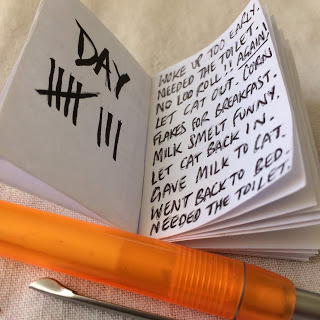 DAY
WOKE UP TOO EARLY.
NEEDED THE TOILET.
NO LOO ROLL!! AGAIN!
LET CAT OUT. CORN
FLAKES FOR BREAKFAST.
MILK SMELT FUNNY.
LET CAT BACK IN.
GAVE MILK TO CAT.
WENT BACK TO BED.
NEEDED THE TOILET.